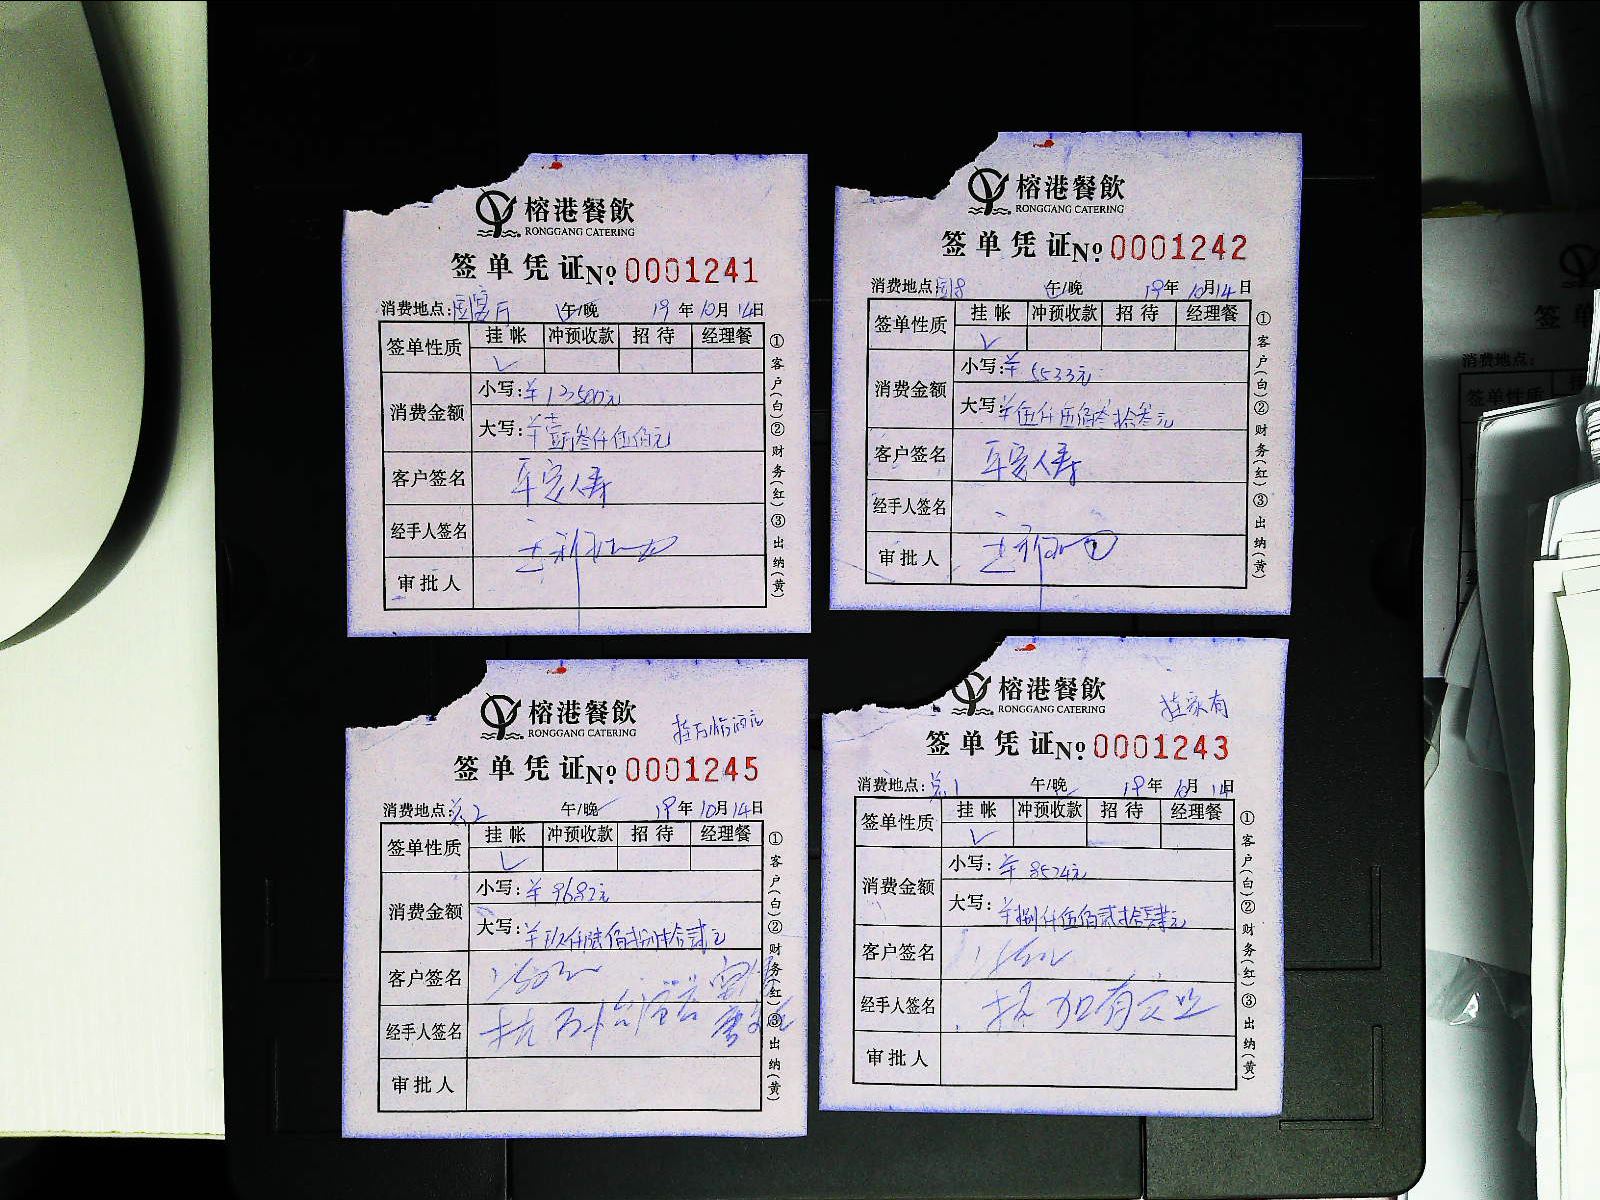 榕港餐飲
RONGGANG CATERING
签单凭证№0001241
消费地点: 国宴厅 午/晚 19年10月14日
签单性质 挂帐 冲预收款 招待 经理餐
消费金额
小写:¥13500元
大写:¥壹万叁仟伍佰元
客户签名 平安人寿
经手人签名
审批人
①客户(白)②财务(红)③出纳(黄)
榕港餐飲
RONGGANG CATERING
签单凭证№0001242
消费地点:国8 午/晚 19年10月14日
签单性质 挂帐 冲预收款 招待 经理餐
消费金额
小写:¥5533元
大写:¥伍仟伍佰叁拾叁元
客户签名 平安人寿
经手人签名
审批人
①客户(白)②财务(红)③出纳(黄)
榕港餐飲
RONGGANG CATERING
签单凭证№0001245
消费地点: 2 午/晚 19年10月14日
签单性质 挂帐 冲预收款 招待 经理餐
消费金额
小写:¥9682元
大写:¥玖仟陆佰捌拾贰元
客户签名
经手人签名
审批人
①客户(白)②财务(红)③出纳(黄)
榕港餐飲
RONGGANG CATERING
签单凭证№0001243
消费地点: 1 午/晚 19年10月14日
签单性质 挂帐 冲预收款 招待 经理餐
消费金额
小写:¥8524元
大写:¥捌仟伍佰贰拾肆元
客户签名
经手人签名
审批人
①客户(白)②财务(红)③出纳(黄)
签单
消费地点:
签单性质
消费金额